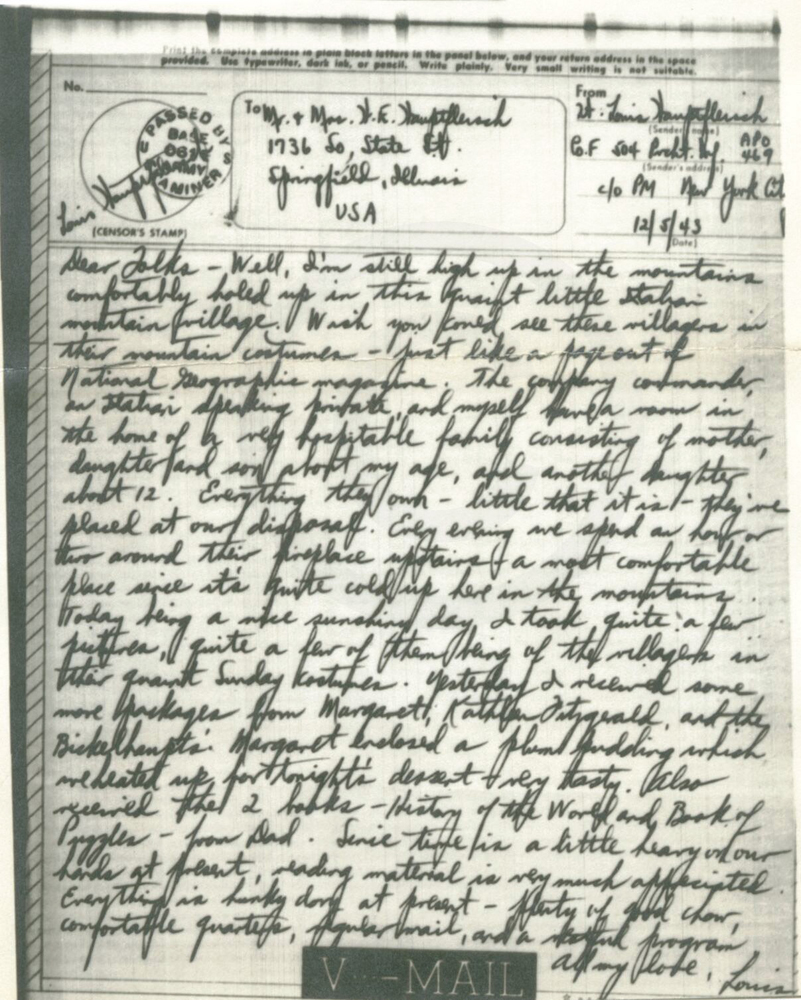 Print the complete address in plain block letters in the panel below, and your return address in the space
provided. Use typewriter, dark ink, or pencil. Write plainly. Very small writing is not suitable.
No.
PASSED BY
BASE
ARMY
EXAMINER
Louis
(CENSOR'S STAMP)
To Mr. & Mrs. H. E. Hauptfleisch
1736 So. State St.
Springfield, Illinois
USA
From
Lt. Louis Hauptfleisch
(Sender's name)
Co. F 504 Pracht. Inf. APO 469
(Sender's address)
c/o PM New York City
12/5/43
(Date)
Dear Folks - Well, I'm still high up in the mountains
comfortably holed up in this quaint little Italian
mountain village. Wish you could see these villagers in
their mountain costumes - just like a page out of
National Geographic magazine. The company commander,
an Italian speaking private, and myself have a room in
the home of a very hospitable family consisting of mother,
daughter and son about my age, and another daughter
about 12. Everything they own - little that it is - they've
placed at our disposal. Every evening we spend an hour or
two around their fireplace upstairs - a most comfortable
place since it's quite cold up here in the mountains.
Today being a nice sunshiny day, I took quite a few
pictures, quite a few of them being of the villagers in
their quaint Sunday kostumes. Yesterday I received some
more packages from Margaret, Kathleen Fitzgerald, and the
Bickelhaupts'. Margaret enclosed a plum pudding which
we heated up for tonight's dessert - very tasty. Also
received the 2 books - History of the World and Book of
Puzzles - from Dad. Since time is a little heavy on our
hands at present, reading material is very much appreciated.
Everything is hunky dory at present - plenty of good chow,
comfortable quarters, regular mail, and a restful program
All my love,
Louis
V···-MAIL